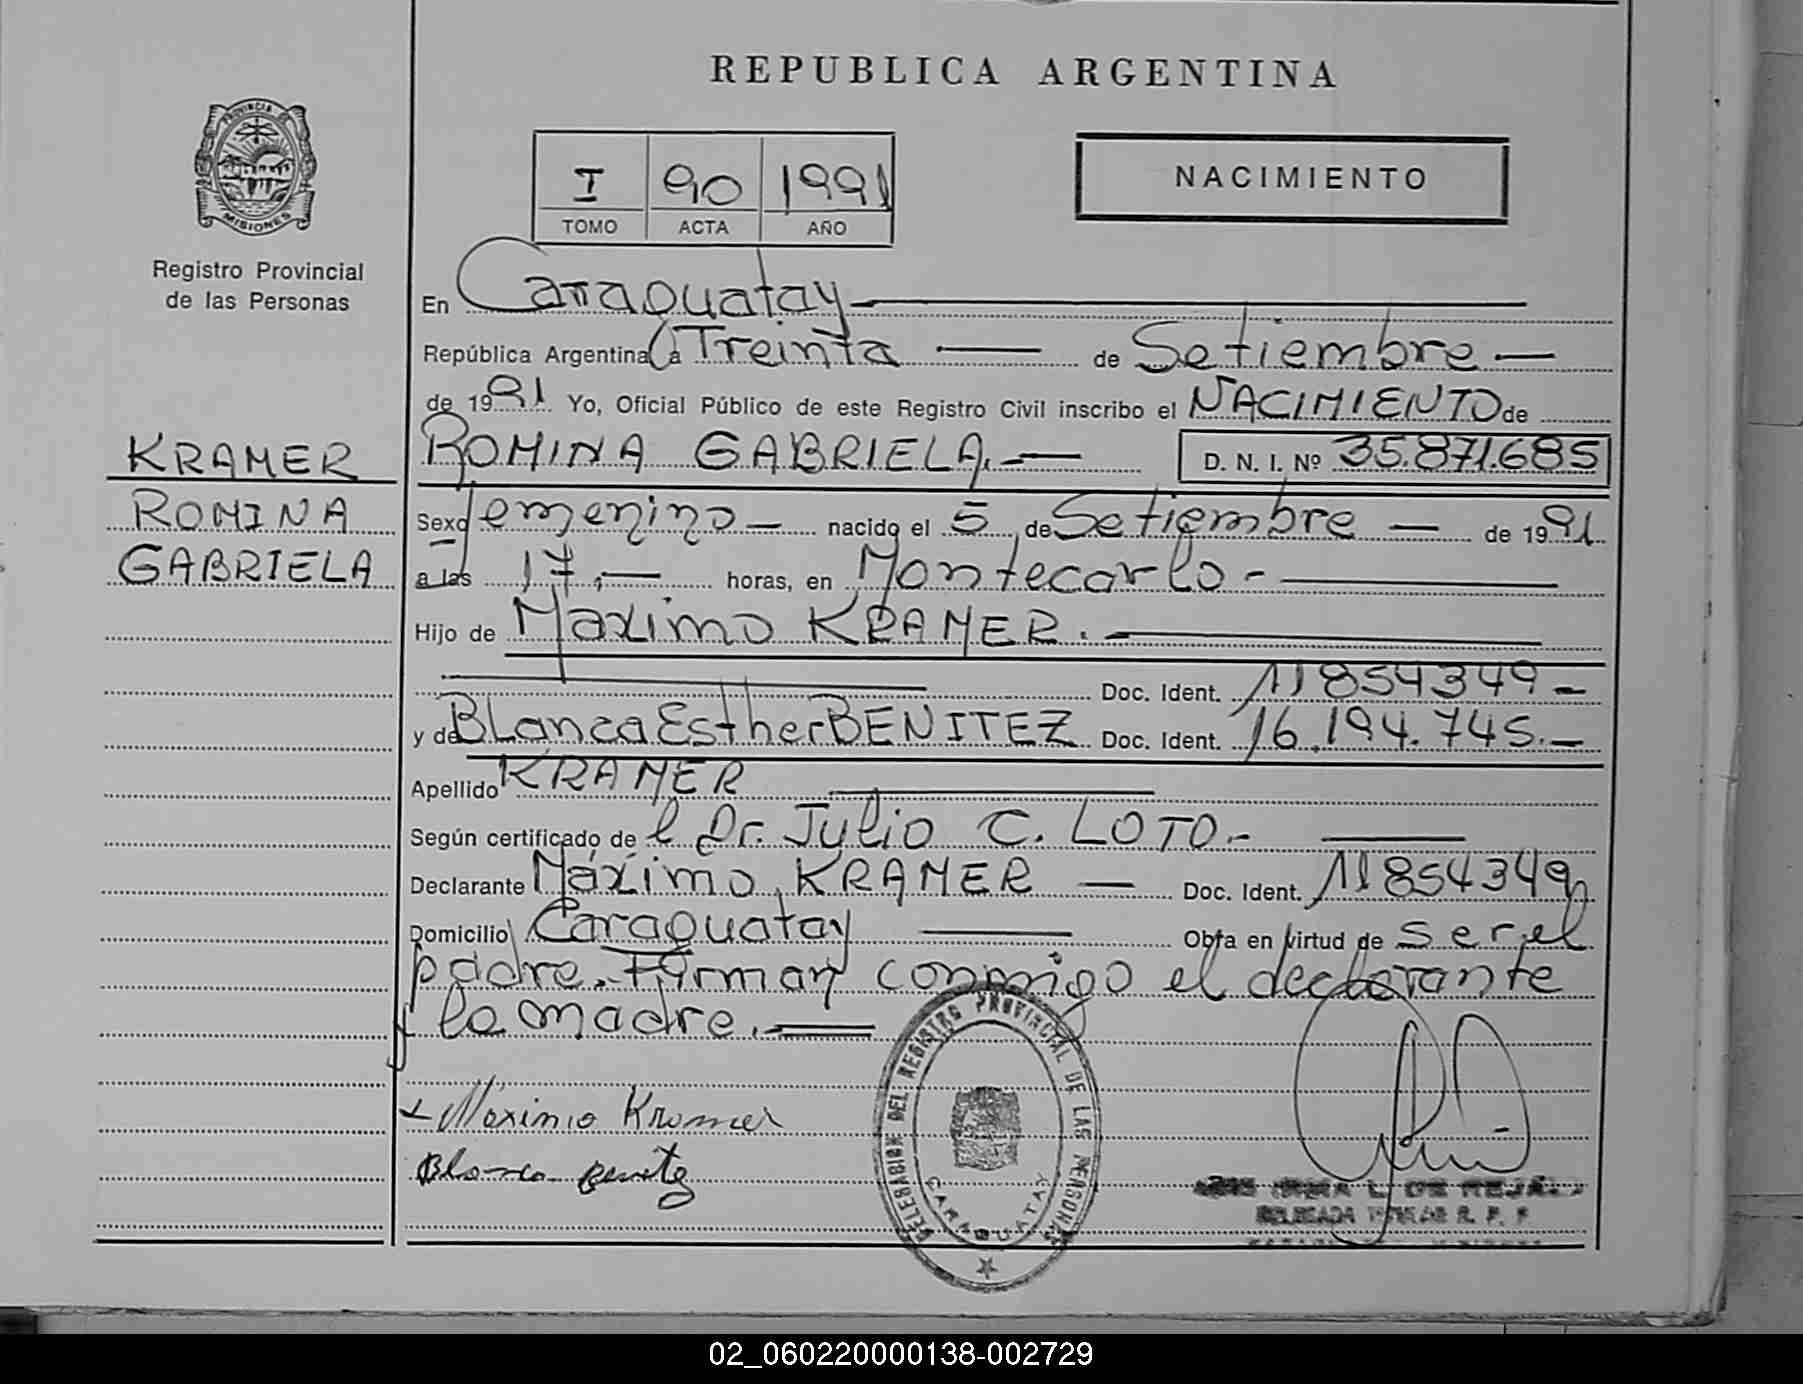 REPUBLICA ARGENTINA
PROVINCIA DE
MISIONES
Registro Provincial
de las Personas
I 90 1991
TOMO ACTA AÑO
NACIMIENTO
En Caraguatay
República Argentina a Treinta de Setiembre
de 1991 Yo, Oficial Público de este Registro Civil inscribo el NACIMIENTO de
ROMINA GABRIELA. D. N. I. Nº 35.871.685
KRAMER
ROMINA
GABRIELA
Sexo femenino nacido el 5 de Setiembre de 1991
a las 17, horas, en Montecarlo
Hijo de Maximo KRAMER.
Doc. Ident. 11854349
y de Blanca Esther BENITEZ Doc. Ident. 16.194.745.
Apellido KRAMER
Según certificado de l Dr. Julio C. LOTO.
Declarante Máximo KRAMER Doc. Ident. 11854349
Domicilio Caraguatay Obra en virtud de ser el
padre. Firman conmigo el declarante
y la madre.
Maximio Kramer
Blanca Benitez
DELEGACION DEL REGISTRO PROVINCIAL DE LAS PERSONAS
CARAGUATAY
IRMA L. DE
DELEGADA TITULAR R. P. P.
02_060220000138-002729